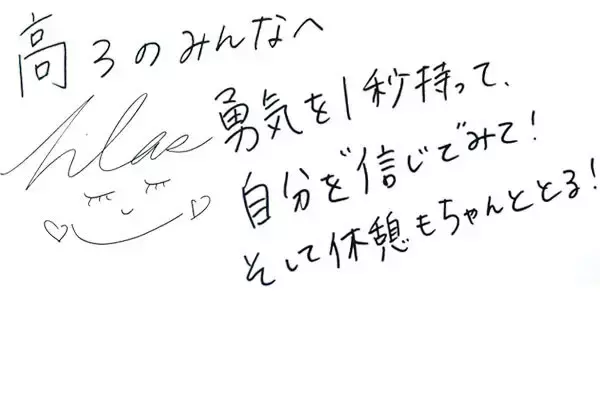 高3のみんなへ
Lilas
勇気を1秒持って、
自分を゛信じでみて！
そして休憩もちゃんととる！